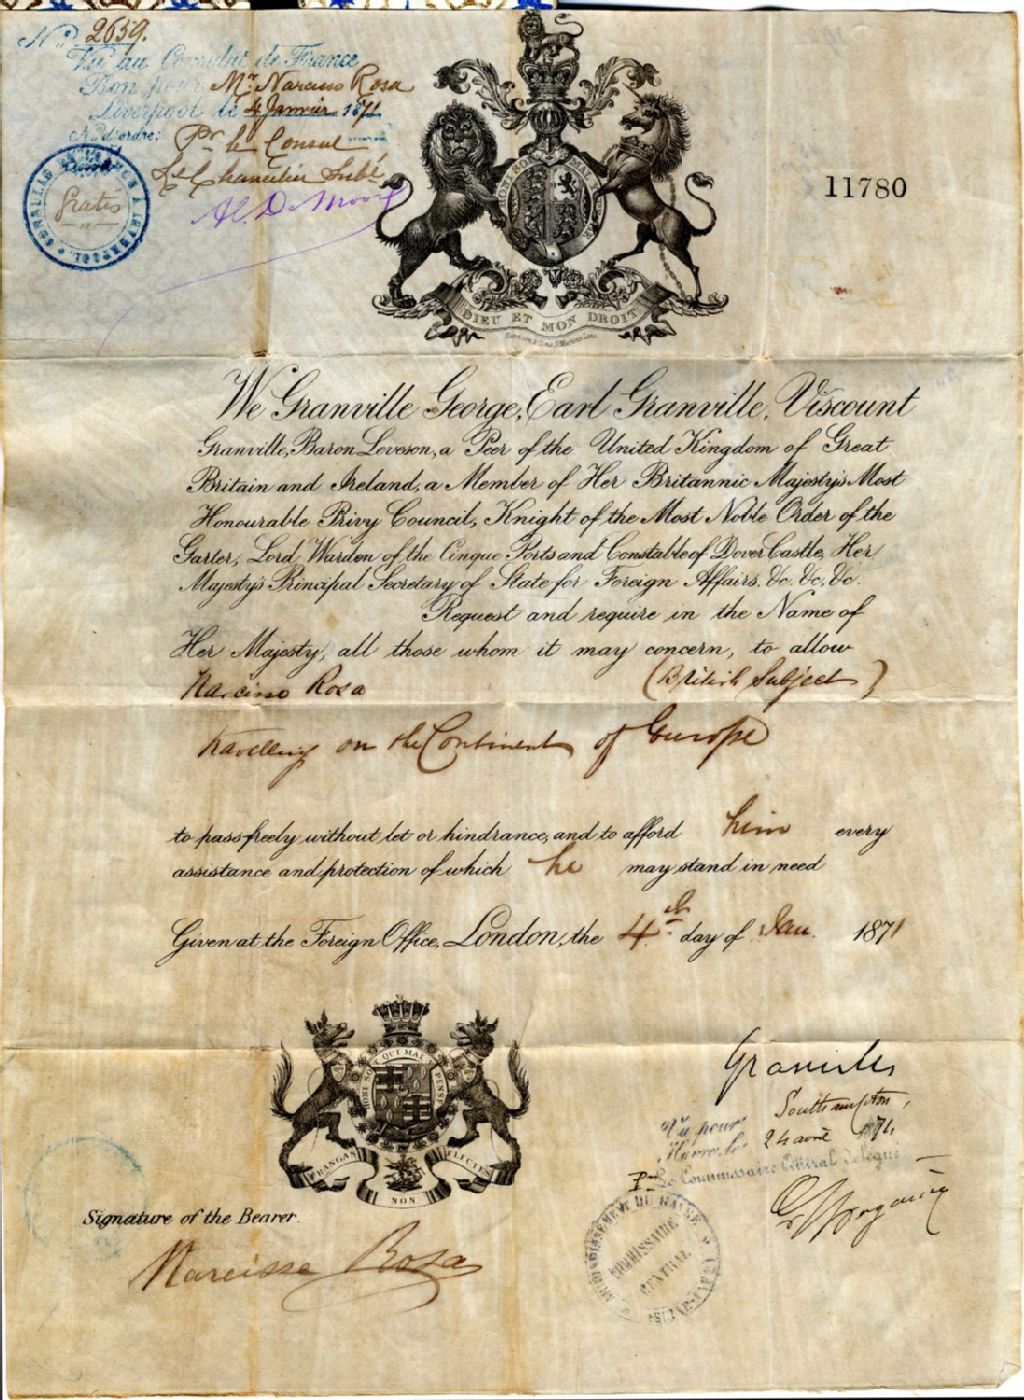 No 2659.
Vu au Consulat de France
Bon pour Mr. Narcisse Rosa
Liverpool le 4 Janvier 1871
No d'ordre:
Pr le Consul
Le Chancelier Subé
Gratis
11780
HONI SOIT QUI MAL Y PENSE
DIEU ET MON DROIT
We Granville George, Earl Granville, Viscount
Granville, Baron Leveson, a Peer of the United Kingdom of Great
Britain and Ireland, a Member of Her Britannic Majesty's Most
Honourable Privy Council, Knight of the Most Noble Order of the
Garter, Lord Warden of the Cinque Ports and Constable of Dover Castle, Her
Majesty's Principal Secretary of State for Foreign Affairs, &c. &c. &c.
Request and require in the Name of
Her Majesty, all those whom it may concern, to allow
Narcisse Rosa (British Subject)
travelling on the Continent of Europe
to pass freely without let or hindrance, and to afford him every
assistance and protection of which he may stand in need
Given at the Foreign Office, London, the 4th day of Jan. 1871
HONI SOIT QUI MAL Y PENSE
FRANGAS NON FLECTES
Granville
Southampton,
Vu pour
Havre le 24 avril 1871
Pr Le Commissaire Central délégué
ARRONDISSEMENT DU HAVRE
COMMISSAIRE
CENTRAL
Signature of the Bearer.
Narcisse Rosa